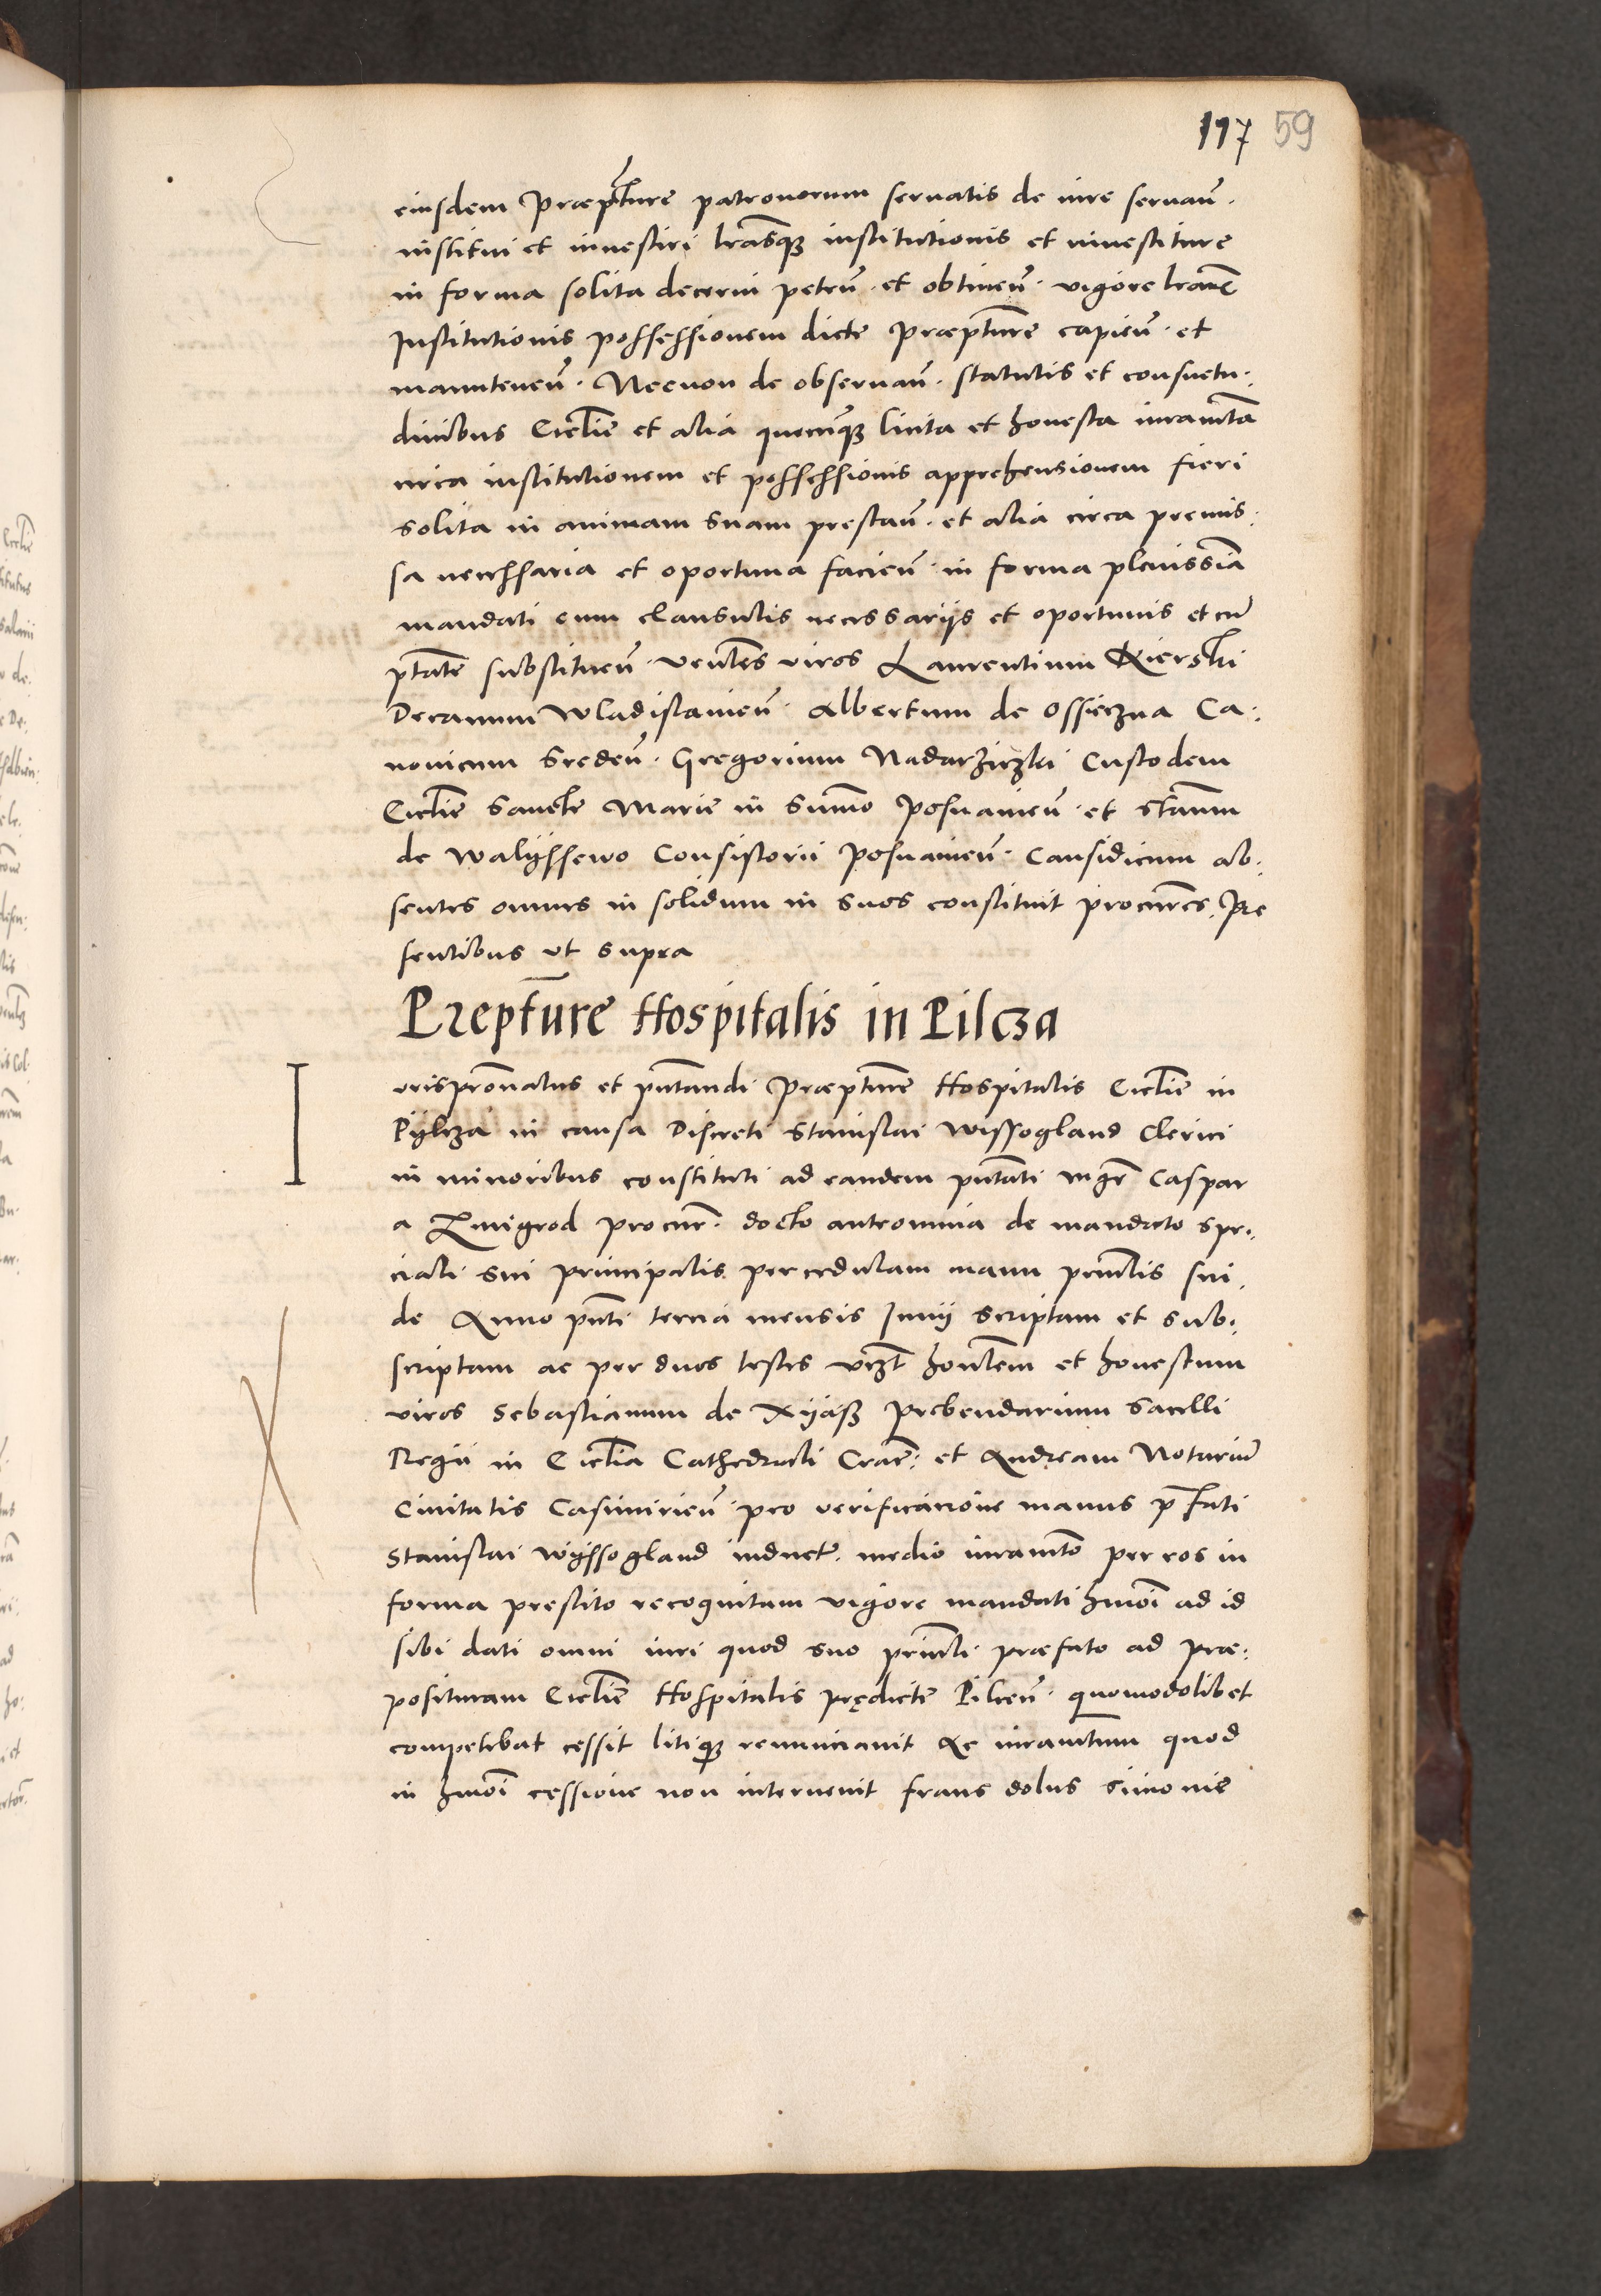 117 59
eiusdem Præpt̄ure patronorum seruatis de iure seruan̄.
institui et inuestiri lrāsqȝ institutionis et inuestiture
in forma solita decerni peten̄. et obtinen̄. vigore lrārū
Institutionis possessionem dicte Præpt̄ure capien̄. et
manutenen̄. Necnon de obseruan̄. statutis et consuetu:
dinibus Eccl̄ie et alia quecunqȝ licita et honesta iuramt̄a
circa institutionem et possessionis apprehensionem fieri
solita in animam suam prestan̄. et alia circa premis:
sa necessaria et oportuna facien̄. in forma plenissīa
mandati cum clausulis necessarijs et oportunis et cū
ptāte substituen̄. Venles viros Laurentium Kierski
Decanum Wladislauien̄. Albertum de Ossieczna Ca:
nonicum Sreden̄. Gregorium Nadarziczki Custodem
Eccl̄ie Sancte Marie in Sum̄o Posnanien̄. et Stan̄um
de Walijssewo Consistorii Posnanien̄. Causidicum ab:
sentes omnes in solidum in suos constituit procurēs. Pre
sentibus vt supra
Prepōture Hospitalis in Pilcza
I
urispronatus et pn̄tandi Præpt̄ure Hospitalis Eccl̄ie in
Pijlcza in causa Discreti Stanislai Wissogland Clerici
in minoribus constituti ad eandem pn̄tati mgr̄ Caspar
a Zmigrod procur̄. docto antromnia de mandato spe:
ciali sui principalis per cedulam manu princl̄is sui
de Anno pn̄ti tercia mensis Junij scriptam et sub:
scriptam ac per duos testes vrzt̄ honlem et honestum
viros Sebastianum de Xijasz Prebendarium Sacelli
Regii in Eccl̄ia Cathedrali Crac̄: et Andream Notariū
Ciuitatis Casimirien̄. pro verificacione manus p̄fati
Stanislai Wijssogland induct. medio iuramt̄o per eos in
forma prestito recognitam vigore mandati hmōi ad id
sibi dati omni iuri quod suo princl̄i præfato ad Præ:
posituram Eccl̄ie Hospitalis prędicte Pilcen̄. quomodolibet
competebat cessit litiqȝ renunciauit Ac iuramt̄um quod
in hmōi cessione non interuenit fraus dolus simonie